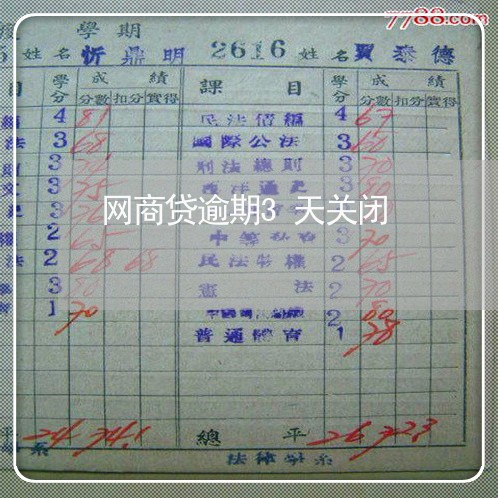 7788.com
學期
姓名 忻鼎明 2616 姓名 賈泰德
目 學分 成績 課目 學分 成績
分數 扣分 實得 分數 扣分 實得
4 81 民法債編 4 67
法 3 68 國際公法 3 60
3 刑法總則 3 70
3 75 西洋通史 3 80
3
2 65 3 70
法 2 68 68 民法物權 2 65
3 80 憲法 2 70
1 70 2 80
普通體育 1 78
網商贷逾期3 天关闭
平 24 74.1 總平 26 72.3
系 法律學系